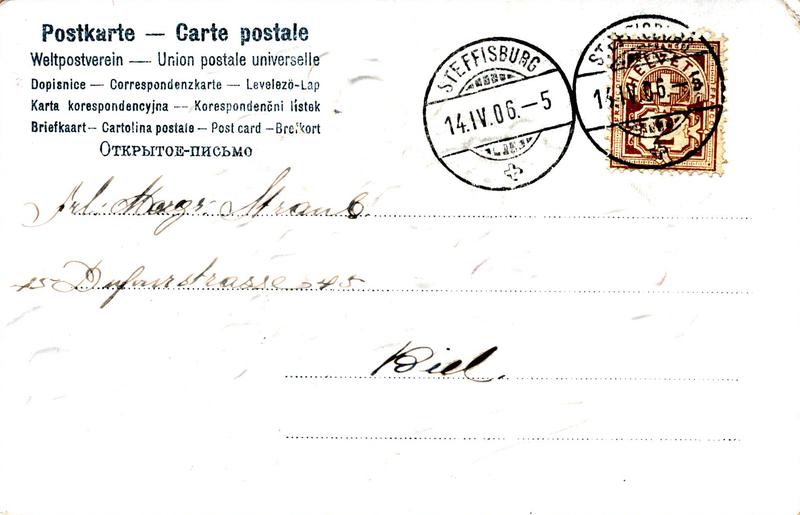 Postkarte — Carte postale
Weltpostverein — Union postale universelle
Dopisnice — Correspondenzkarte — Levelező-Lap
Karta korespondencyjna — Korespondenční listek
Briefkaart — Cartolina postale — Post card — Brefkort
Открытое-письмо
STEFFISBURG
14.IV.06.—5
STEFFISBURG
14.IV.06.—5
HELVETIA
2
Frl. Margr. Straub.
Dufourstrasse
Biel.